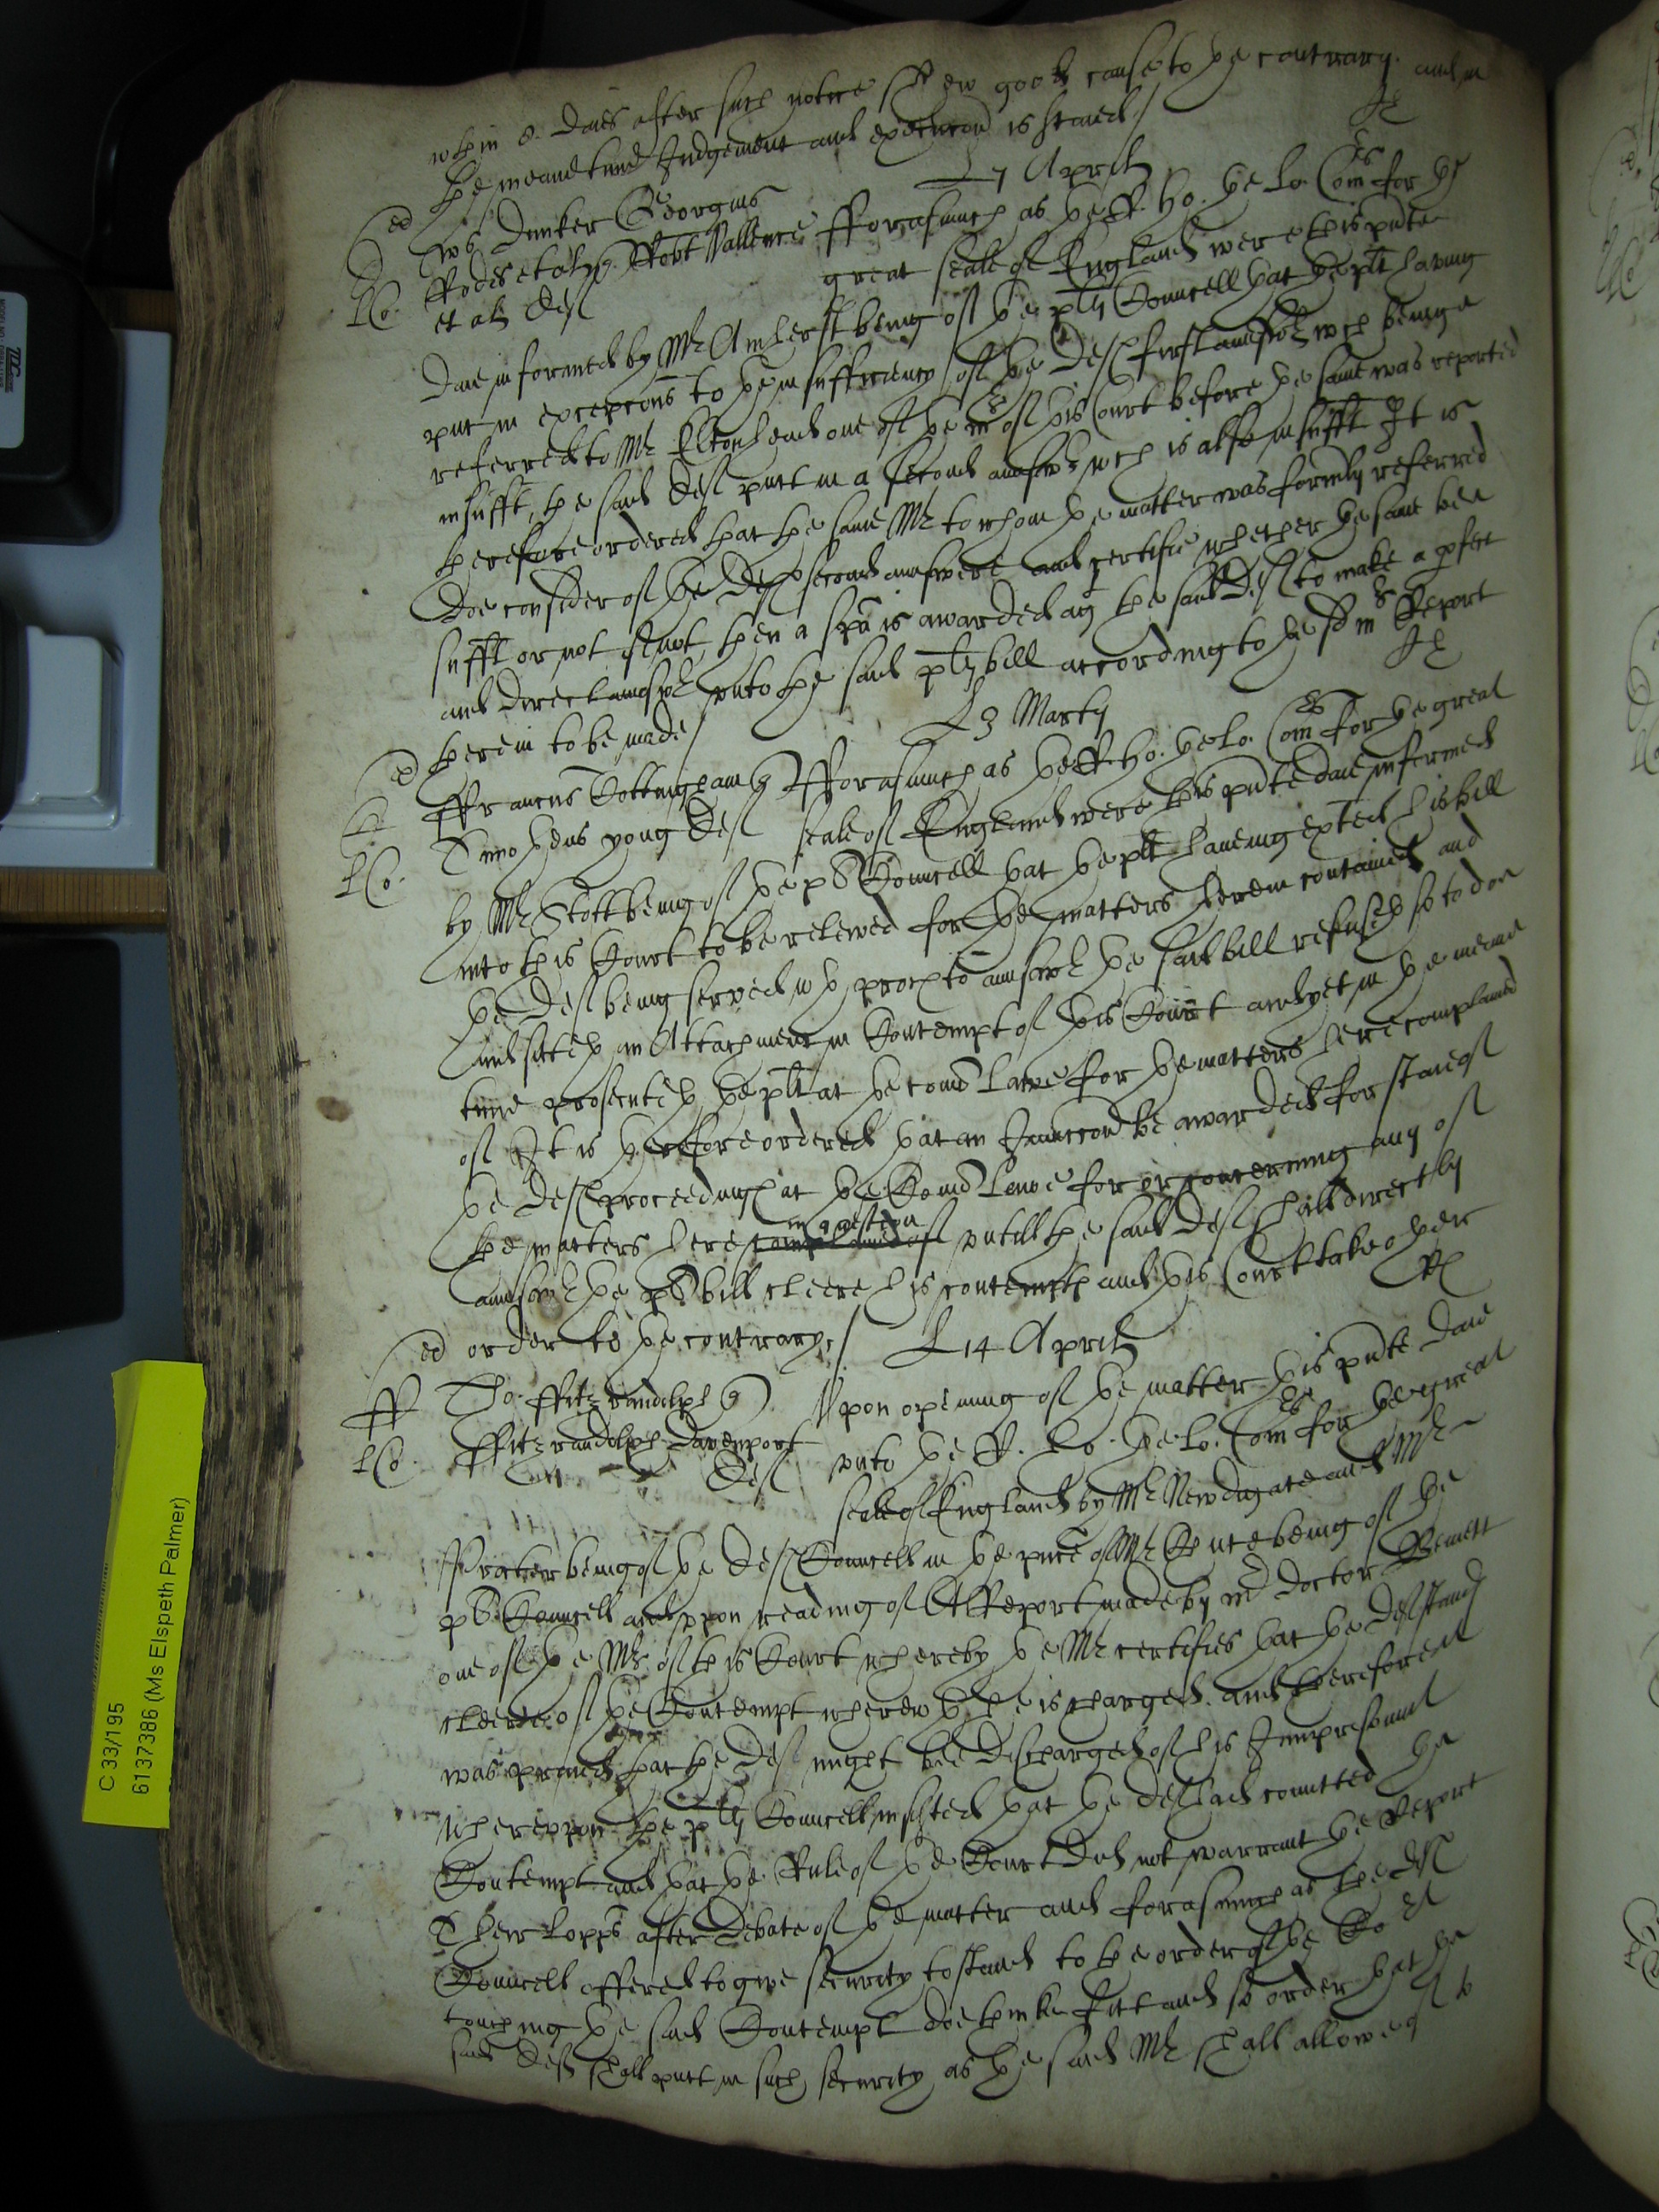 wthin 8. daies after such notice shew good cause to the contrary. and in
the meane time Judgement and execucon is staied /
L 7 Aprilis
Forasmuch as the R. Ho. the Lo. Comrs for the
et als def
great seale of England were this pnte
daie informed by Mr Amherst being of the plts Councell that the plt having
put in excepcons to the insufficiency of the Defts first answer wch being
referred to Mr Eltonhead one of the mrs of this Court before the same was reported
insufft, the said Deft putt in a second answer wch is also insufft It is
therefore ordered that the same Mr to whom the matter was formerly referred
doe consider of the Defts second answere and certifie whether the same bee
sufft or not if not, then a spa is awarded agt the said Deft to make a pfect
and direct answer unto the said plts bill according to the sd mrs Report
therein to be made /
L 3 Martij
Francus Cottingham q
Forasmuch as the R. Ho. the Lo. Comrs for the great
Timotheus yong def
seale of England were this pnte daie informed
by Mr Stott being of the plts Councell that the plt haveing exhted his bill
into this Court to be releived for the matters therein contained and
the Deft being served wth proces to answer the said bill refuseth so to doe
and sitteth an Attachment in Contempt of this Court and yet in the meane
time prosecuteth the plt at the comon Lawe for the matters here complained
of It is therefore ordered that an Iniunccon be awarded for staie of
the Defts proceedings at the Comon Lawe for or concerning any of
in question
the matters here complained of untill the said Deft shall directly
answer the plts bill cleere his contempts and this Court take other
order to the contrary. /
L 14 Aprilis
Tho: Fitzrandolph q
Upon opening of the matter this pnte daie
Fitzrandolph Davenport
def
unto the R. Ho. the Lo. Comrs for the great
seale of England by Mr Newdigate and Mr
being of the Defts Councell in the pnce of Mr being of the
plts Councell and upon reading of A Report made by mr doctor Bennett
one of the Mrs of this Court whereby the Mr certifies that the Deft stands
cleered of the Contempt wherewth he is charged. and therefore it
was praied that the Deft might bee discharged of his Imprisonmt
Whereupon the plts Councell insisted that the deft had comitted the
Contempt and that the Rule of the Court did not warrant the Report
Their Lopps after debate of the matter and forasmuch as the Defts
Councell offered to give security to stand to the order of the Cort
touching the said Contempt doe thinke fitt and so order that the
said Deft shall putt in such security as the said Mr shall allowe of to
C 33/195
6137386 (Ms Elspeth Palmer)